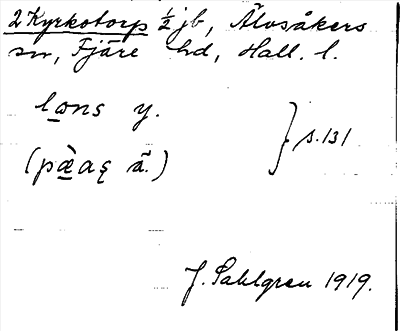 2 Kyrkotorp ½ jb, Älvsåkers
sn, Fjäre hd, Hall. l.
lons y.
(pæ̀aş ä.)
} s. 131
J. Sahlgren 1919.